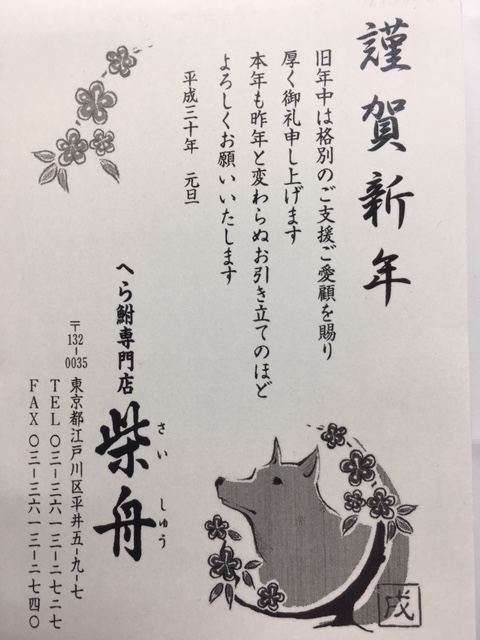 謹賀新年
旧年中は格別のご支援ご愛顧を賜り
厚く御礼申し上げます
本年も昨年と変わらぬお引き立てのほど
よろしくお願いいたします
平成三十年 元旦
へら鮒専門店
柴舟
さいしゅう
〒132-0035 東京都江戸川区平井五-九-七
TEL 〇三-三六一三-二七二七
FAX 〇三-三六一三-二七四〇
戌